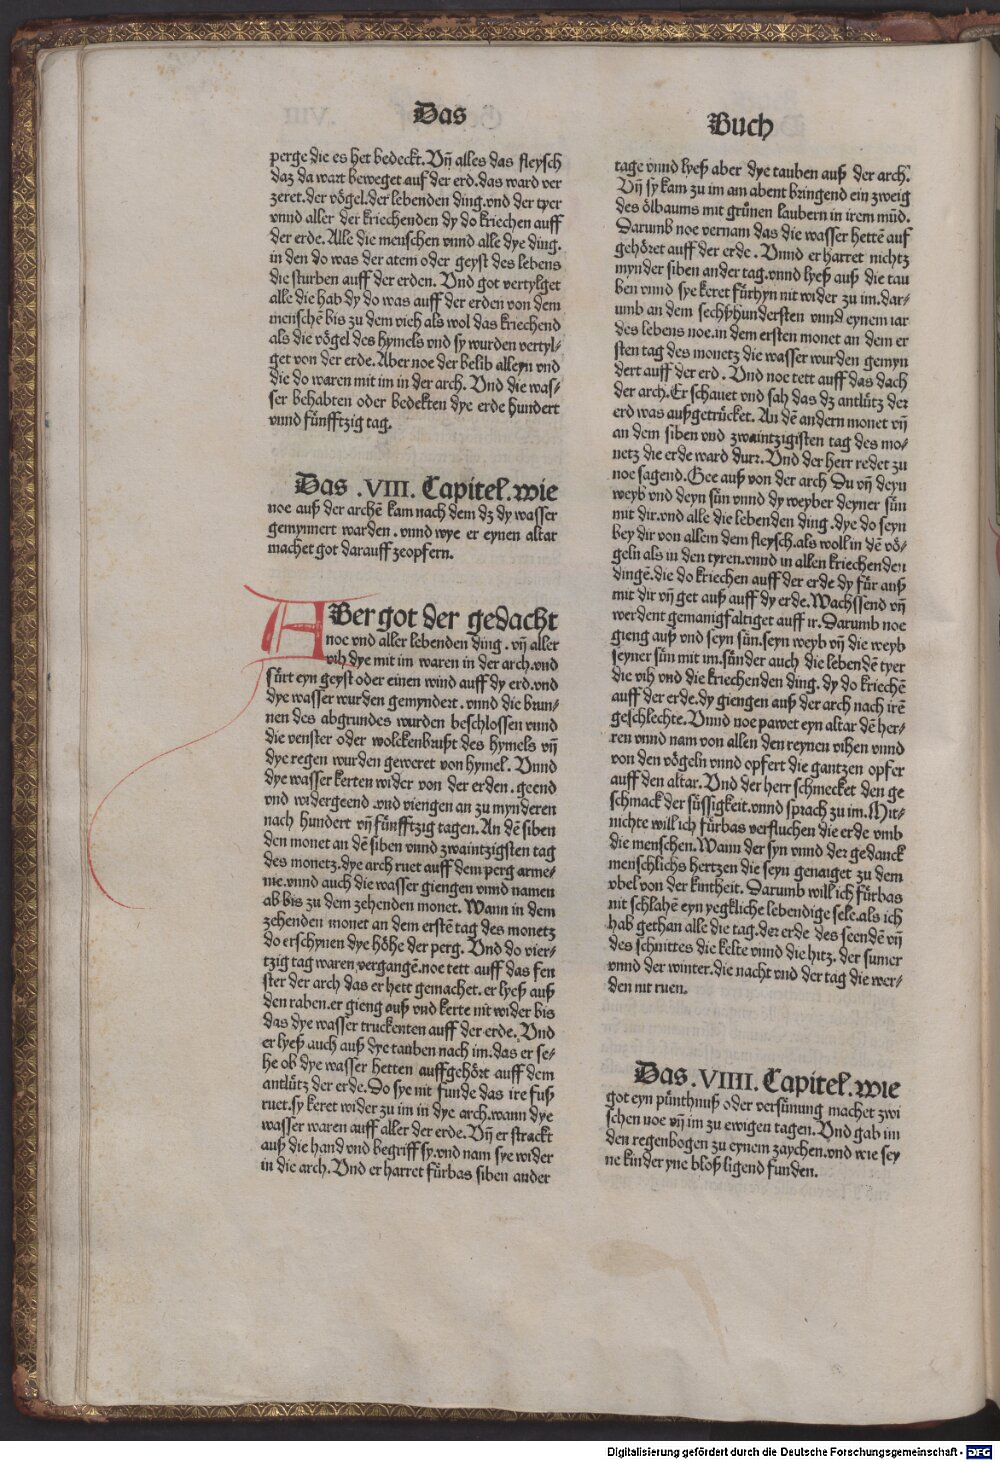 Das
perge die es het bedeckt. Vñ alles das fleysch
daz da wart beweget auf der erd. das ward ver
zeret. der vögel. der lebenden ding. vnd der tyer
vnnd aller der kriechenden dy do kriechen auff
der erde. Alle die menschen vnnd alle dye ding.
in den do was der atem oder geyst des lebens
die sturben auff der erden. Vnd got vertylget
alle die hab dy do was auff der erden von dem
menschē bis zu dem vich als wol das kriechend
als die vögel des hymels vnd sy wurden vertyl-
get von der erde. Aber noe der belib alleyn vnd
die do waren mit im in der arch. Vnd die was-
ser behabten oder bedekten dye erde hundert
vnnd fünfftzig tag.
Das .VIII. Capitel. wie
noe auß der archē kam nach dem dz dy wasser
gemynnert warden. vnnd wye er eynen altar
machet got darauff zeopfern.
ABer got der gedacht
noe vnd aller lebenden ding. vñ aller
vih dye mit im waren in der arch. vnd
fürt eyn geyst oder einen wind auff dy erd. vnd
dye wasser wurden gemyndert. vnnd die brun-
nen des abgrundes wurden beschlossen vnnd
die venster oder wolckenbrußt des hymels vñ
dye regen wurden geweret von hymel. Vnnd
dye wasser kerten wider von der erden. geend
vnd widergeend. vnd viengen an zu mynderen
nach hundert vñ fünfftzig tagen. An dē siben
den monet an dē siben vnnd zwaintzigsten tag
des monetz. dye arch ruet auff dem perg arme-
nie. vnnd auch die wasser giengen vnnd namen
ab bis zu dem zehenden monet. Wann in dem
zehenden monet an dem erstē tag des monetz
do erschynen dye höhe der perg. Vnd do vier-
tzig tag waren vergangē. noe tett auff das fen
ster der arch das er hett gemachet. er lyeß auß
den raben. er gieng auß vnd kerte nit wider bis
das dye wasser truckenten auff der erde. Vnd
er lyeß auch auß dye tauben nach im. das er se-
he ob dye wasser hetten auffgehört auff dem
antlütz der erde. Do sye nit funde das ire fuß
ruet. sy keret wider zu im in dye arch. wann dye
wasser waren auff aller der erde. Vñ er strackt
auß die hand vnd begriff sy. vnd nam sye wider
in die arch. Vnd er harret fürbas siben ander
Buch
tage vnnd lyeß aber dye tauben auß der arch.
Vñ sy kam zu im am abent bringend ein zweig
des ölbaums mit grünen laubern in irem mūd.
Darumb noe vernam das die wasser hettē auf
gehöret auff der erde. Vnnd er harret nichtz
mynder siben ander tag. vnnd lyeß auß die tau
ben vnnd sye keret fürhyn nit wider zu im. dar-
umb an dem sechßhundersten vnnd eynem iar
des lebens noe. in dem ersten monet an dem er
sten tag des monetz die wasser wurden gemyn
dert auff der erd. Vnd noe tett auff das dach
der arch. Er schauet vnd sah das dz antlütz der
erd was außgetrücket. An dē andern monet vñ
an dem siben vnd zwaintzigisten tag des mo-
netz die erde ward durr. Vnd der herr redet zu
noe sagend. Gee auß von der arch Du vñ deyn
weyb vnd deyn sün vnnd dy weyber deyner sün
mit dir. vnd alle die lebenden ding. dye do seyn
bey dir von allem dem fleysch. als woll in dē vö-
geln als in den tyren. vnnd in allen kriechenden
dingē. die do kriechen auff der erde dy für auß
mit dir vñ get auß auff dy erde. Wachssend vñ
werdent gemanigfaltiget auff ir. Darumb noe
gieng auß vnd seyn sün. seyn weyb vñ die weyb
seyner sün mit im. sünder auch die lebendē tyer
die vih vnd die kriechenden ding. dy do kriechē
auff der erde. dy giengen auß der arch nach irē
geschlechte. Vnnd noe pawet eyn altar dē her-
ren vnnd nam von allen den reynen vihen vnnd
von den vögeln vnnd opfert die gantzen opfer
auff den altar. Vnd der herr schmecket den ge
schmack der süssigkeit. vnnd sprach zu im. Mit-
nichte will ich fürbas verfluchen die erde vmb
die menschen. Wann der syn vnnd der gedanck
menschlichs hertzen die seyn genaiget zu dem
vbel von der kintheit. Darumb will ich fürbas
nit schlahē eyn yegkliche lebendige sele. als ich
hab gethan alle die tag. der erde des seendē vñ
des schnittes die kelte vnnd die hitz. der sumer
vnnd der winter. die nacht vnd der tag die wer-
den nit ruen.
Das .VIIII. Capitel. wie
got eyn pünthnuß oder versünung machet zwi
schen noe vñ im zu ewigen tagen. Vnd gab im
den regenbogen zu eynem zaychen. vnd wie sey
ne kinder yne bloß ligend funden.
Digitalisierung gefördert durch die Deutsche Forschungsgemeinschaft - DFG